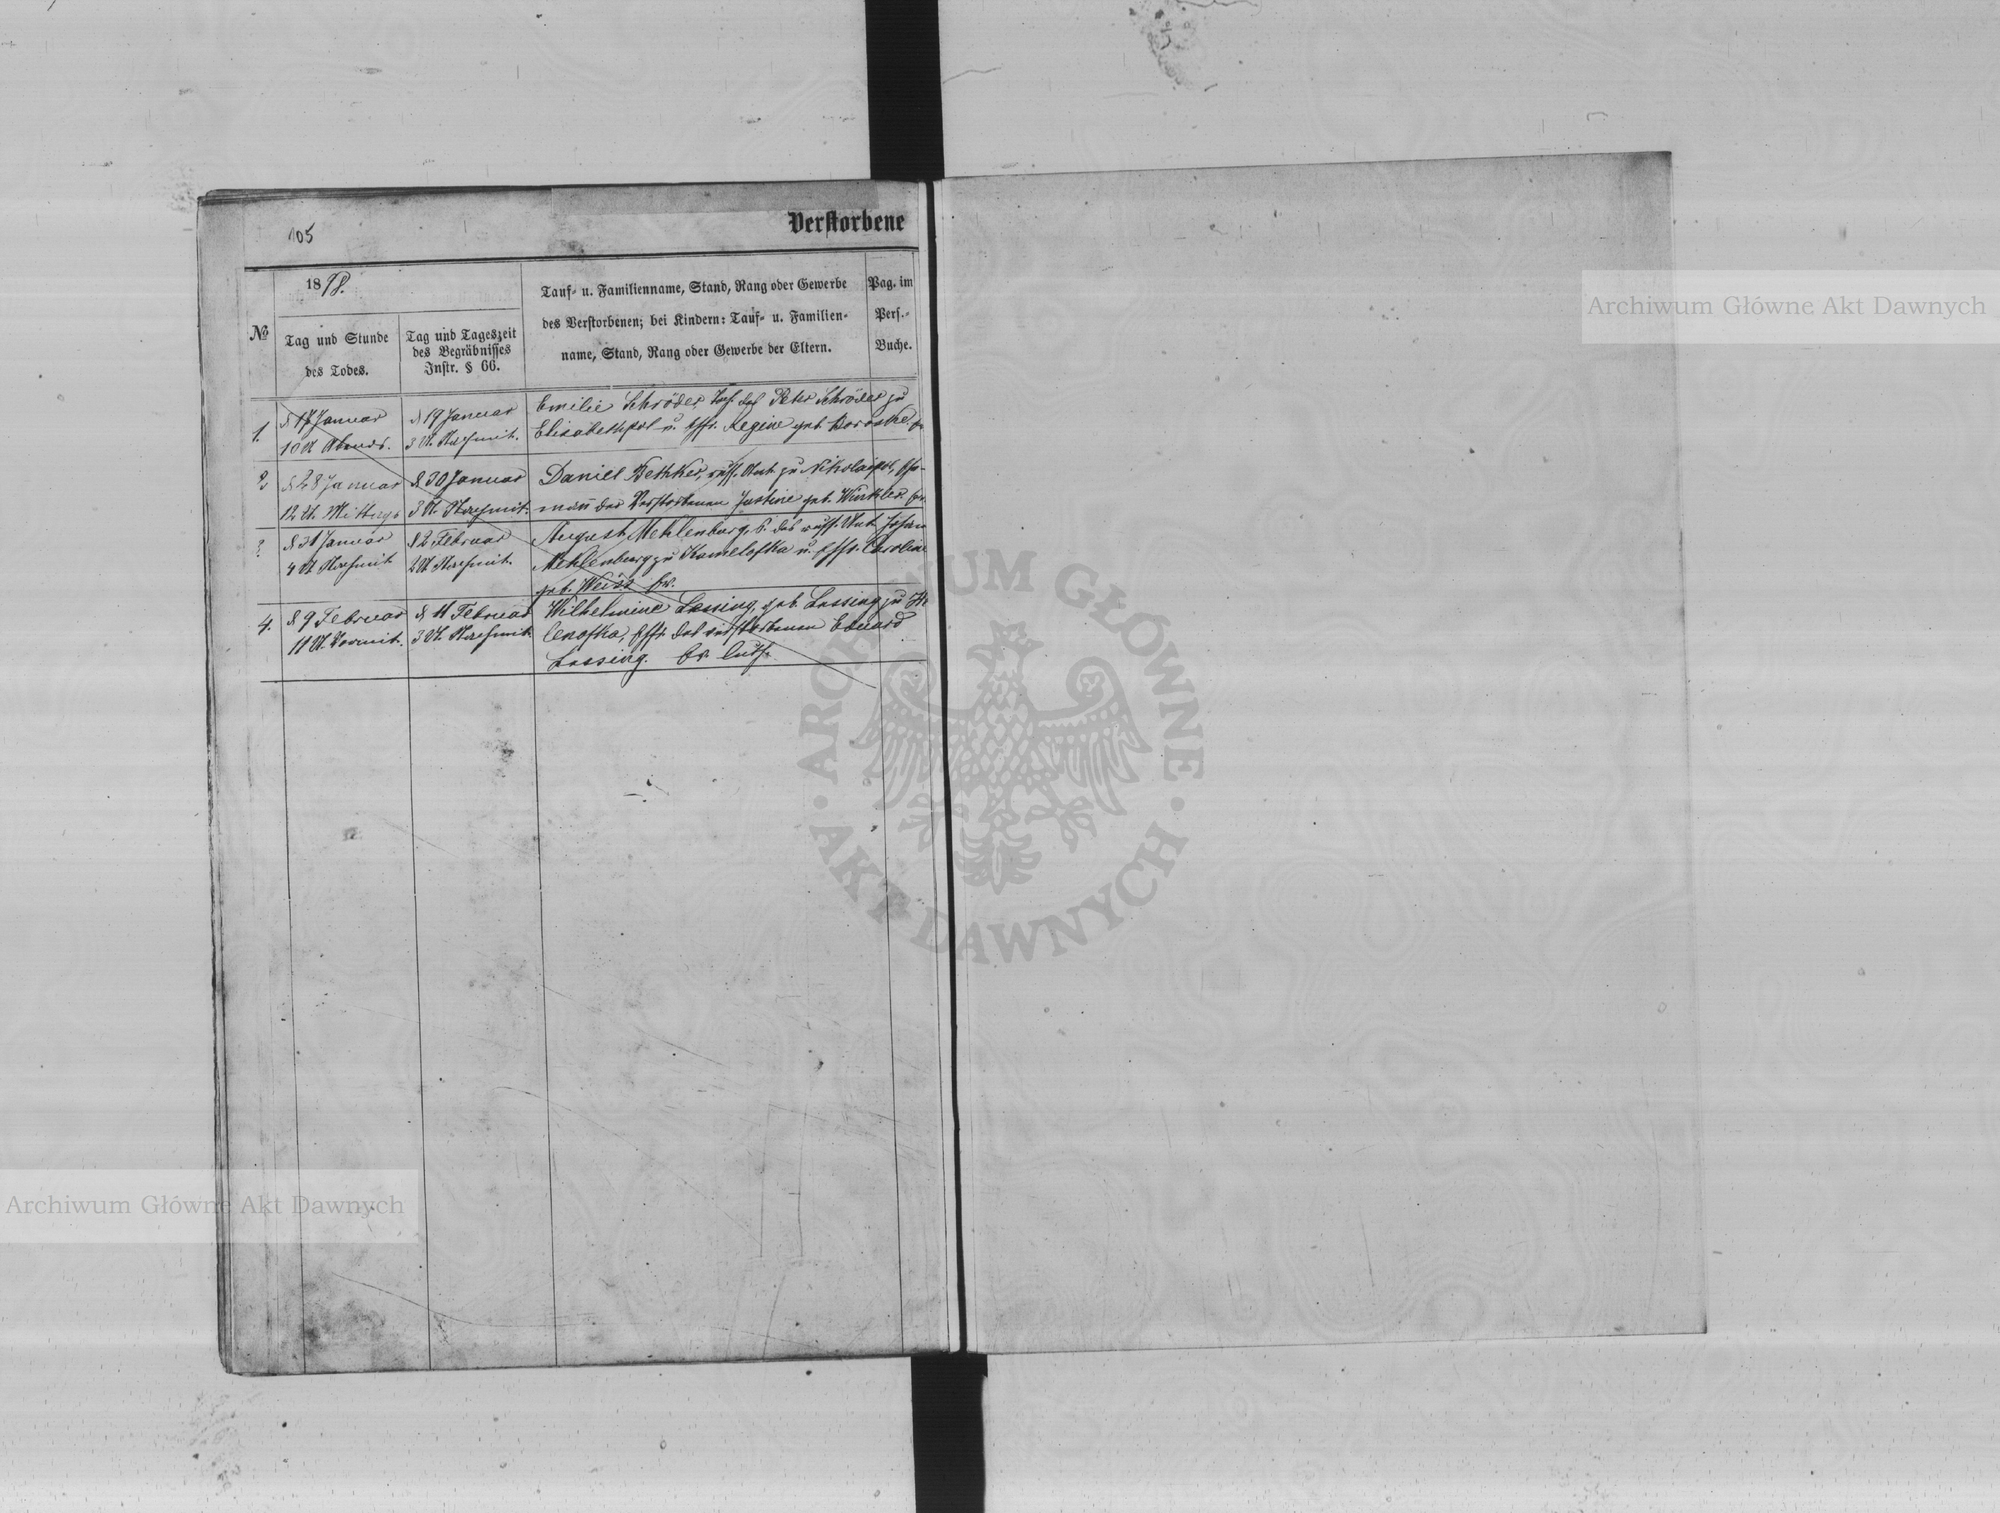 Verstorbene
105
1878.
№
Tag und Stunde
des Todes.
Tag und Tageszeit
des Begräbnisses
Instr. § 66.
Tauf- u. Familienname, Stand, Rang oder Gewerbe
des Verstorbenen; bei Kindern: Tauf- u. Familien-
name, Stand, Rang oder Gewerbe der Eltern.
Pag. im
Pers.-
Buche.
1.
17 Januar
10 U Abends.
19 Januar
3 U. Nachmit.
Emilie Schröder, des Peter Schröder zu
Elisabethpol u. Regine geb.
2
28 Januar
12 U. Mittags
30 Januar
3 U. Nachmit.
Daniel Bethker, zu Nikolaipol,
der Verstorbenen Justine geb. Winkler
31 Januar
4 U Nachmit
2 Februar
2 U Nachmit.
August Mehlenburg, S. des
Mehlenburg zu u. Caroline
geb. Weiss
4.
9 Februar
11 U. Vormit.
11 Februar
3 U. Nachmit.
Wilhelmine Lessing, geb. Lessing zu He
lenofka, des verstorbenen Eduard
Lessing.
Archiwum Główne Akt Dawnych
ARCHIWUM GŁÓWNE
AKT DAWNYCH
Archiwum Główne Akt Dawnych